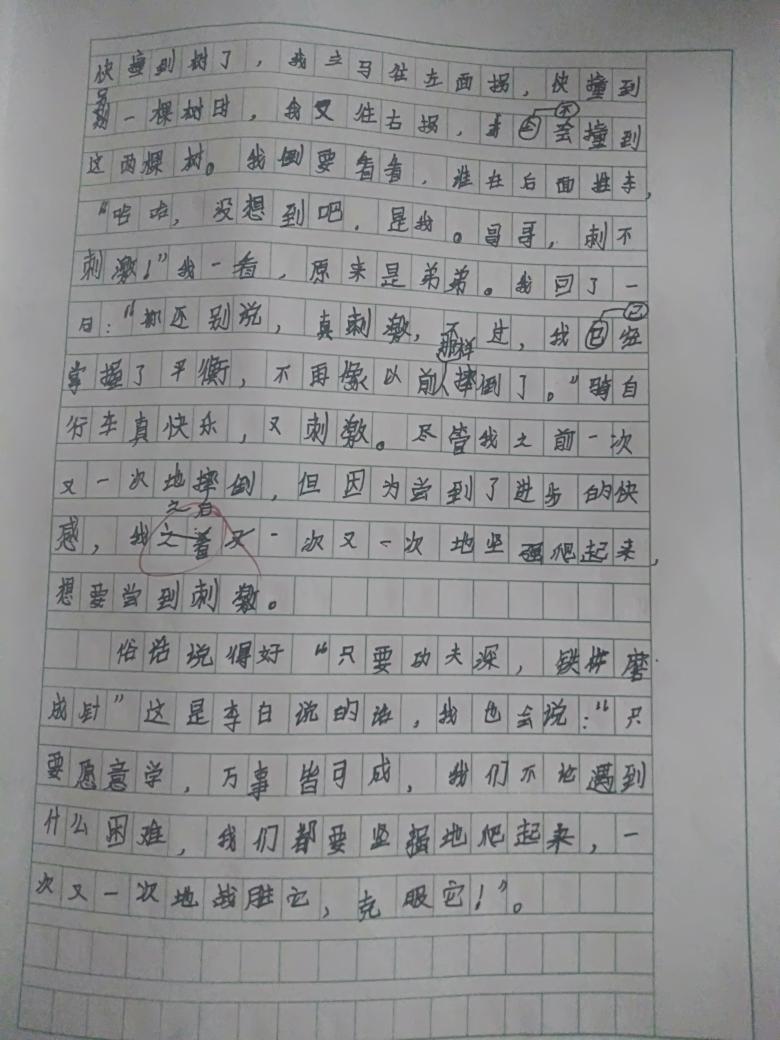 快撞到树了，我立马往左面拐，快撞到
另一棵树时，我又往右拐，才不会撞到
这两棵树。我倒要看看，谁在后面推车，
“哈哈，没想到吧，是我。哥哥，刺不
刺激！”我一看，原来是弟弟。我回了一
句：“你还别说，真刺激，不过，我已经
掌握了平衡，不再像以前那样摔倒了。”骑自
行车真快乐，又刺激。尽管我之前一次
又一次地摔倒，但因为尝到了进步的快
感，我之后一次又一次地坚强爬起来，
想要尝到刺激。
俗话说得好“只要功夫深，铁杵磨
成针”这是李白说的话，我也会说：“只
要愿意学，万事皆可成，我们不论遇到
什么困难，我们都要坚强地爬起来，一
次又一次地战胜它，克服它！”。